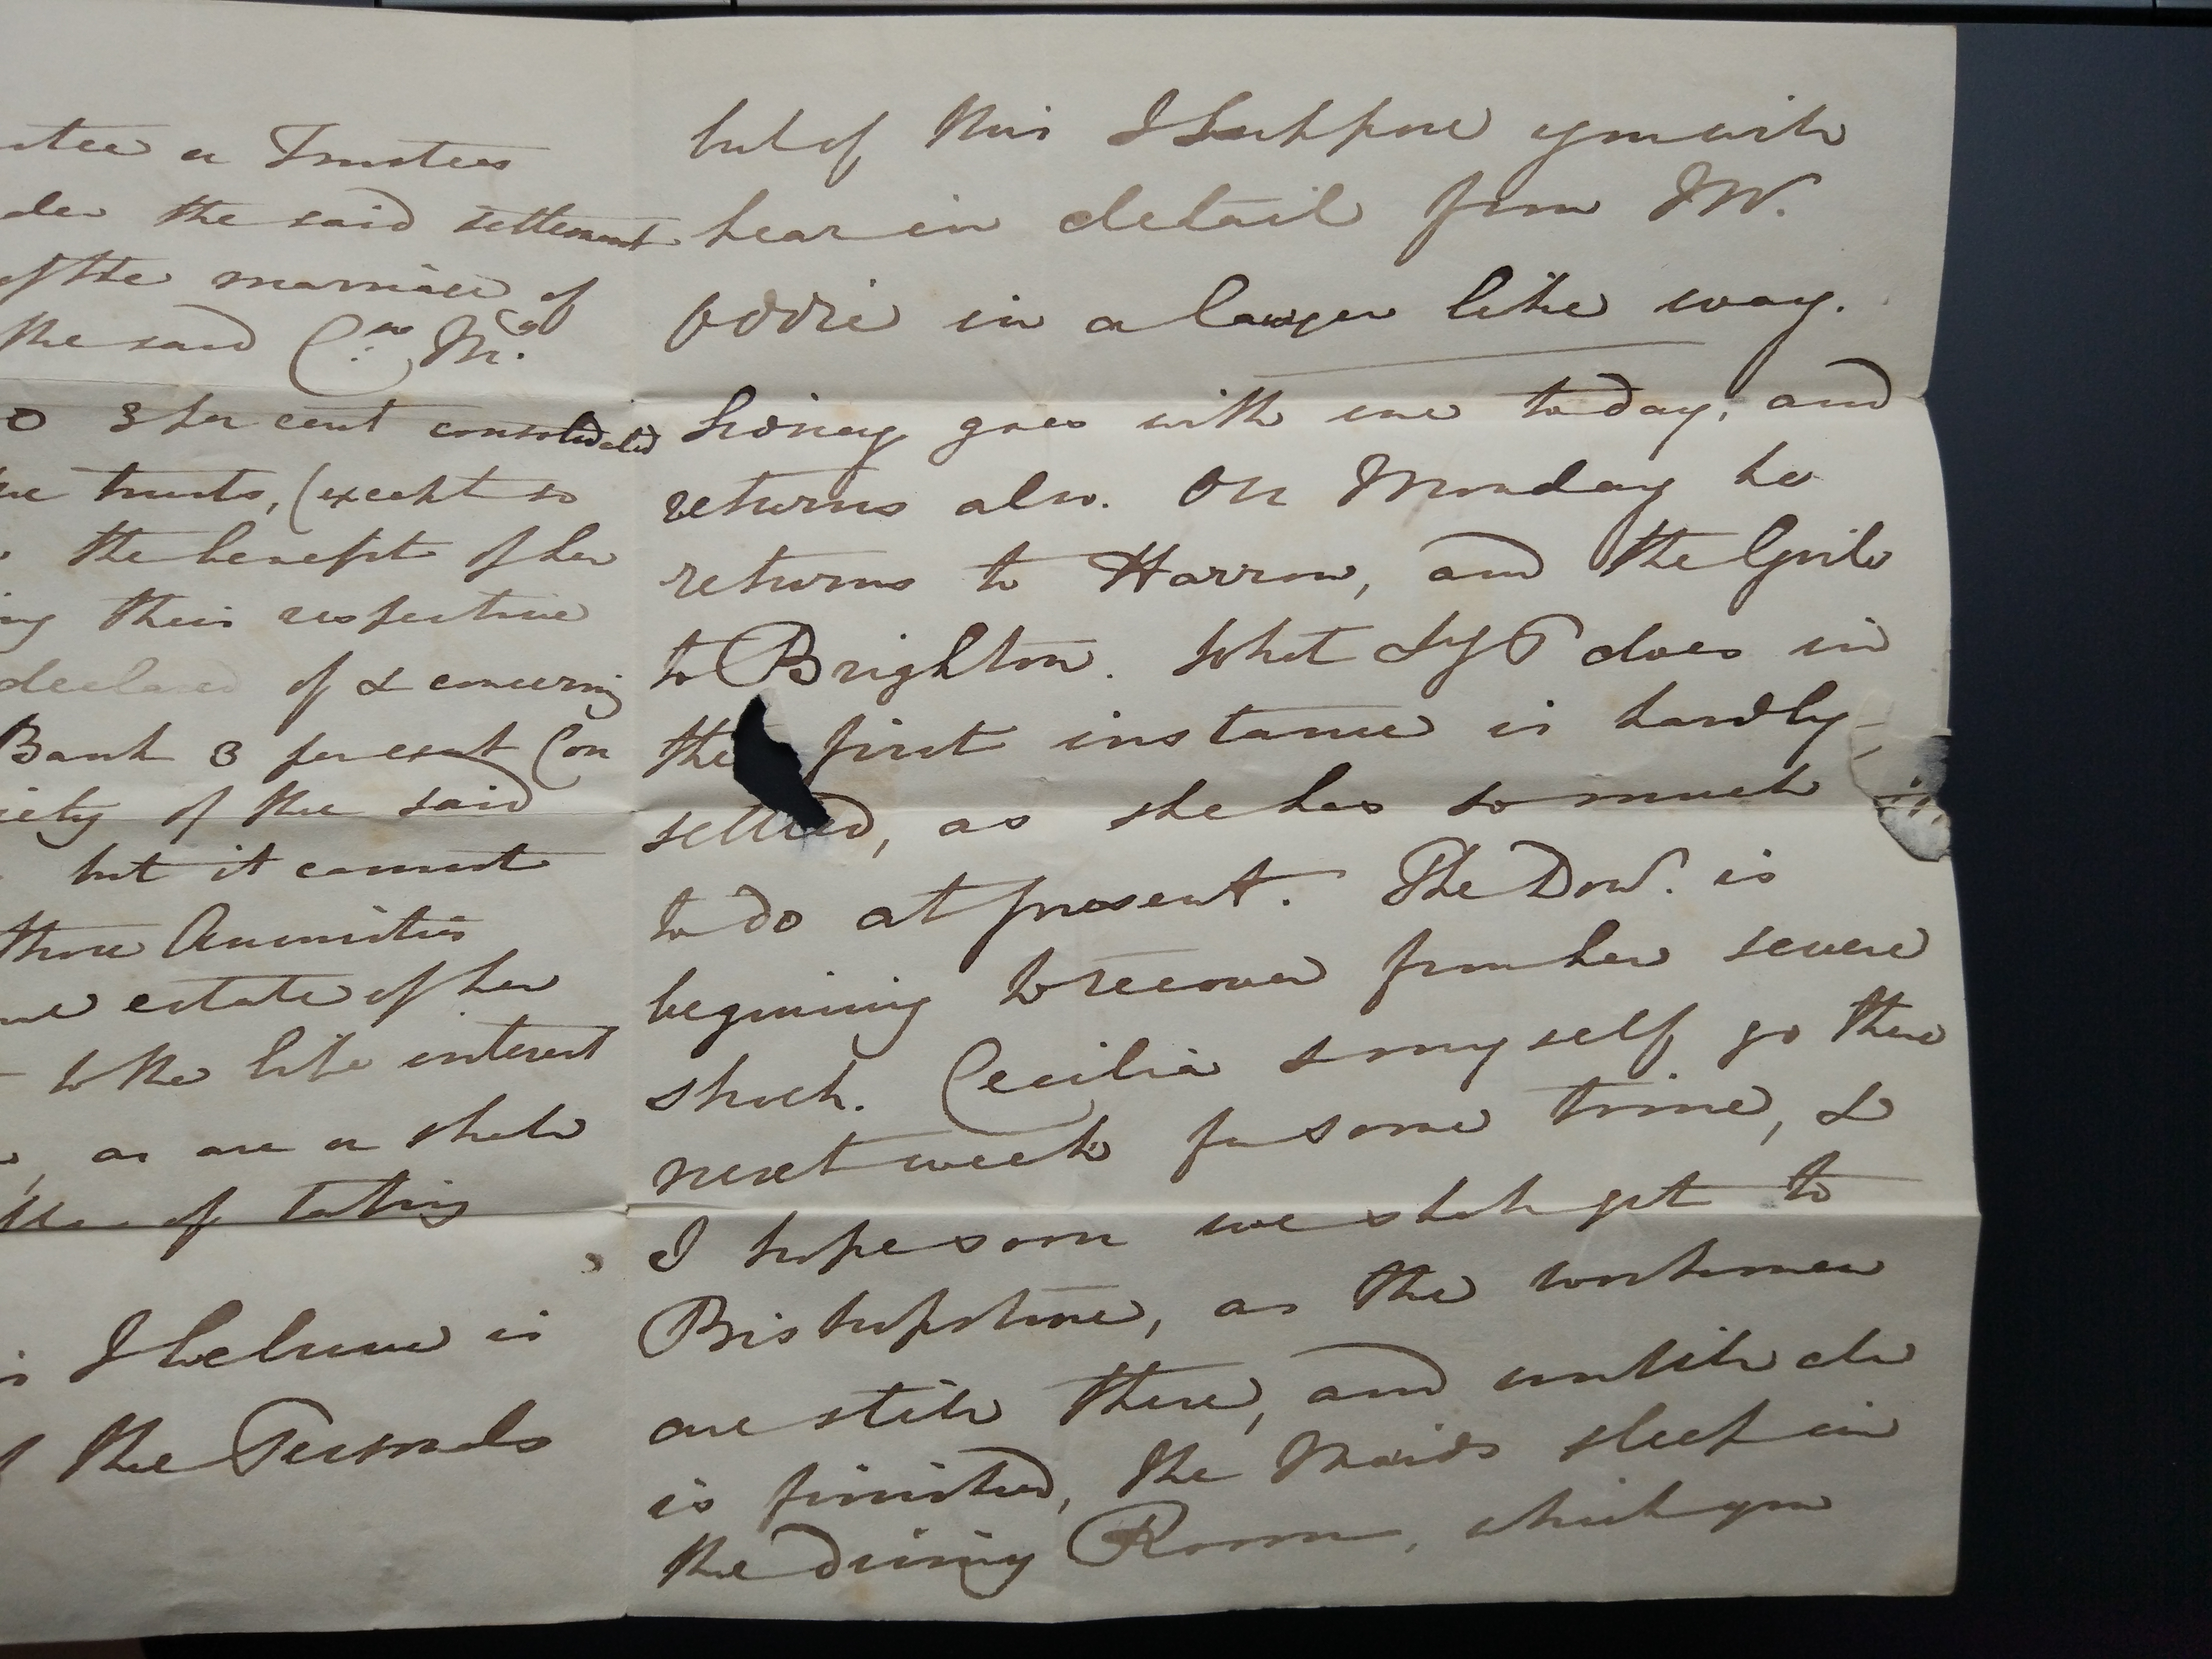 stee or Trustees
der the said settlement
of the marriage of
the said C:as M:
0 3 per cent consolidated
trusts, (except so
the benefit of her
ing their respective
declared of & concerning
Bank 3 per cent Con
iety of the said
but it cannot
those Annuities
estate of her
to the like interest
as are or shall
of taking
I believe is
the Funds
but of this I suppose you will
hear in detail from JW.
Oddie in a lawyer like way.
Sidney goes with me today, and
returns also. On Monday he
returns to Harrow, and the Girls
to Brighton. What Ly P does in
the first instance is hardly
settled, as she has so much
to do at present. The Dow.r is
begining to recover from her severe
shock. Cecilia & myself go there
next week for some time, &
I hope soon we shall get to
Bishopstone, as the workmen
are still there, and until all
is finished, the Maids sleep in
the dining Room, which you